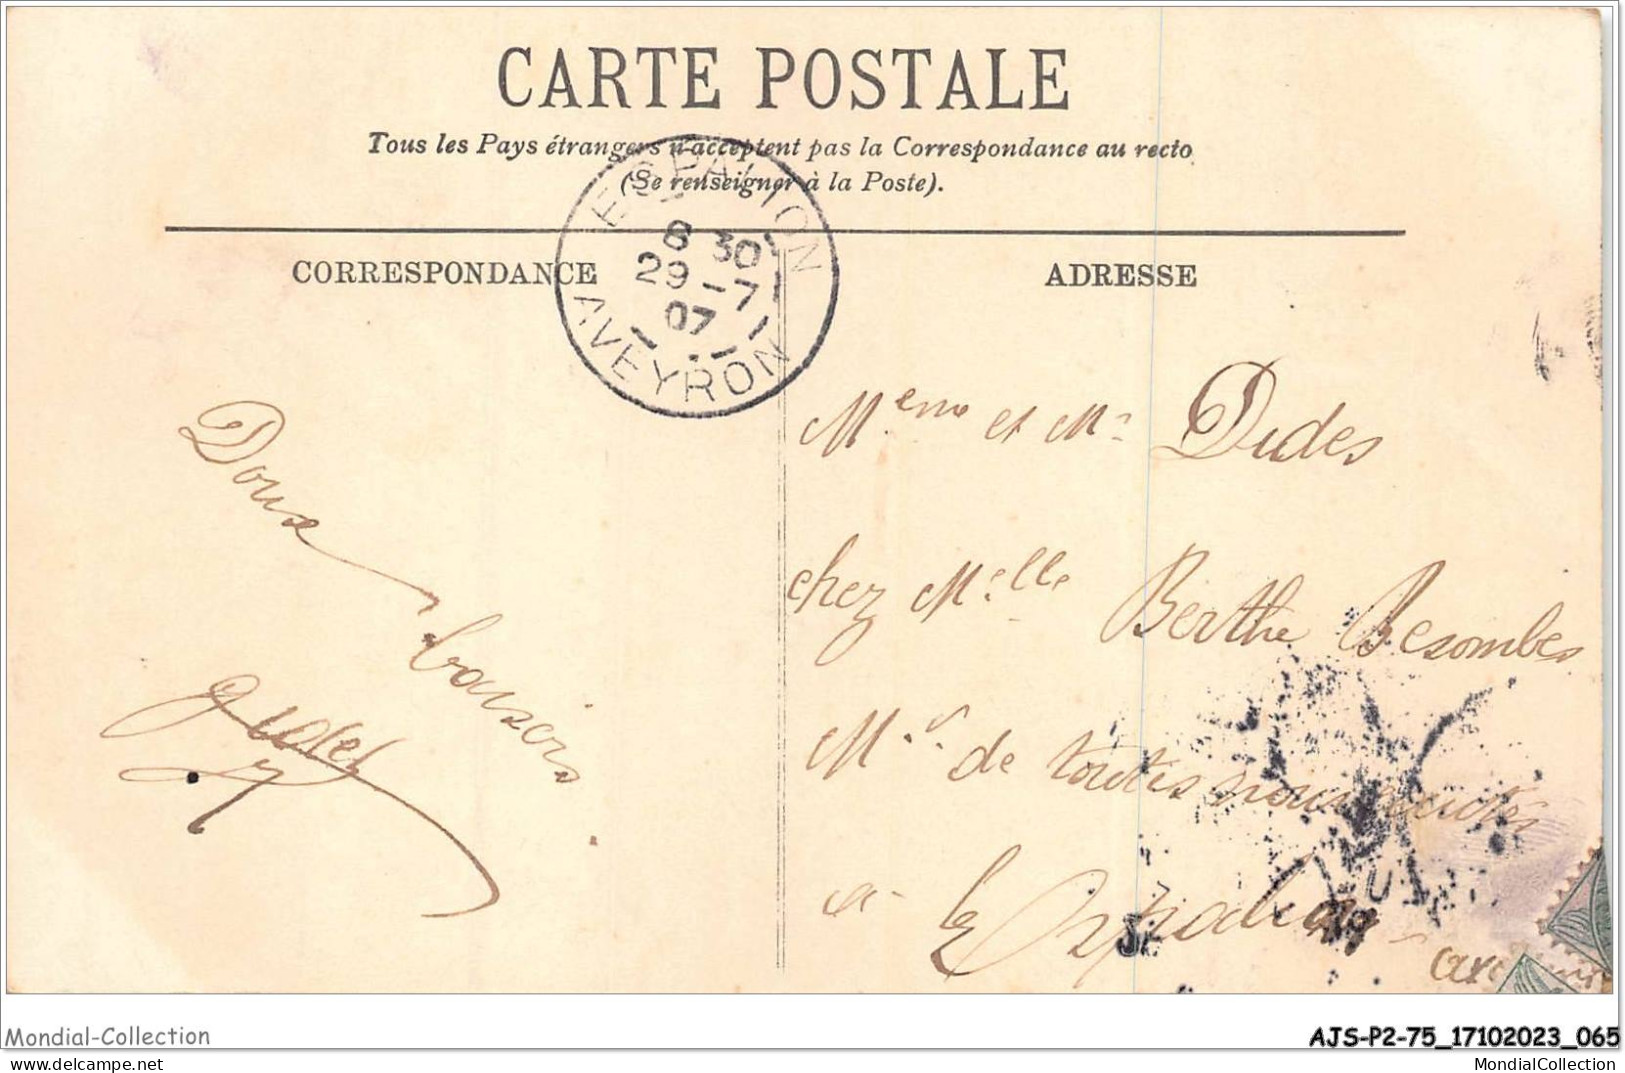 CARTE POSTALE
Tous les Pays étrangers n'acceptent pas la Correspondance au recto
(Se renseigner à la Poste).
CORRESPONDANCE
ADRESSE
ESPALION
8 30
29 - 7
07
AVEYRON
Doux
baisers
Mme et Mr Dides
chez Melle Berthe Besombes
Mon de toutes nouveautés
à Espalion
Mondial-Collection
AJS-P2-75_17102023_065
MondialCollection